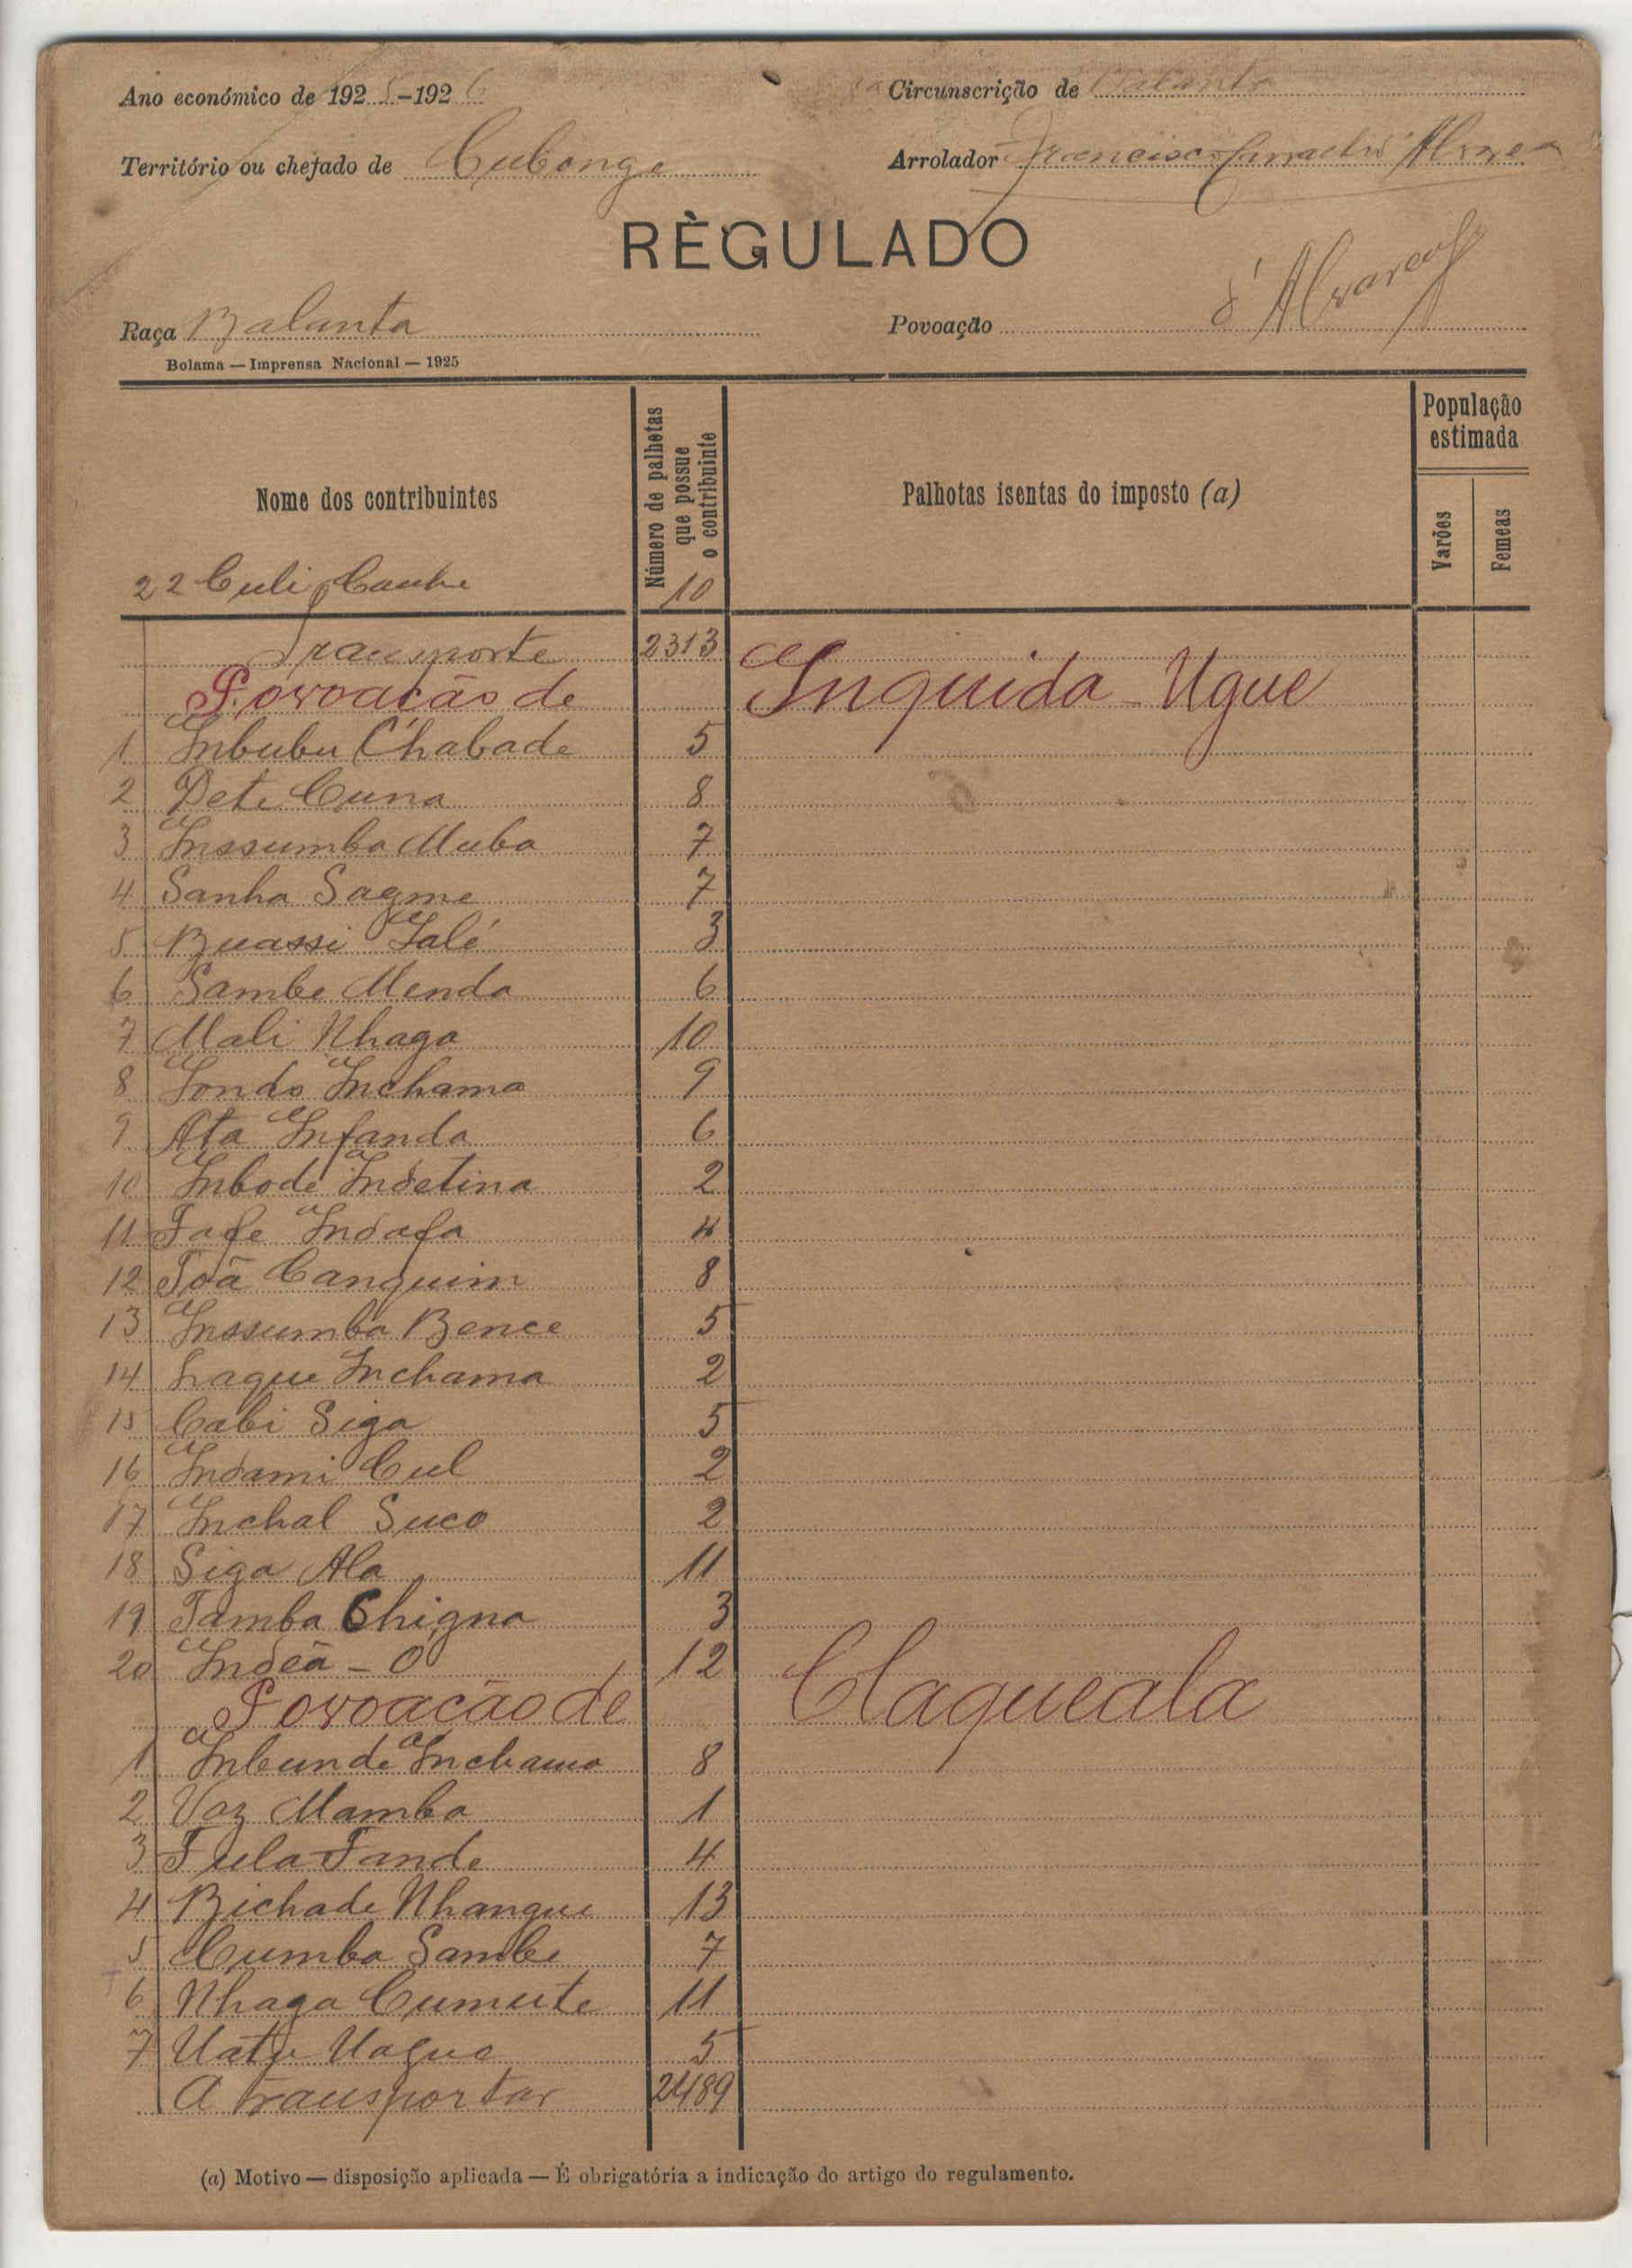 Ano económico de 1925-1926
Circunscrição de Balanta
Território ou chefado de Cubonge
Arrolador Francisco Alvares
RÈGULADO
d'Alvares
Raça Balanta
Povoação
Bolama — Imprensa Nacional — 1925
Nome dos contribuintes
Número de palhetas que possue o contribuinte
Palhotas isentas do imposto (a)
População estimada
Varões
Femeas
22 Culi Canhe 10
Transporte 2313
Povoação de Inquida - Ugue
1 Inbubu Chabade 5
2 Dete Cuna 8
3 Inssumba Muba 7
4 Sanha Sagme 7
5 Buassi Ialé 3
6 Sambe Menda 6
7 Mali Nhaga 10
8 Iondo Inchama 9
9 Ata Infanda 6
10 Inbodé Indetina 2
11 Fafe Indafa 4
12 Toã Canquim 8
13 Inssumba Bence 5
14 Laque Inchama 2
15 Cabi Siga 5
16 Indami Cul 2
17 Inchal Suco 2
18 Siga Ala 11
19 Tamba Chigna 3
20 Indeã - O 12
Povoação de Claqueala
1 Inbunde Inchama 8
2 Vaz Mamba 1
3 Fula Fande 4
4 Bichade Nhangue 13
5 Cumba Sambe 7
6 Nhaga Cumute 11
7 Uatu 5
A transportar 2489
(a) Motivo — disposição aplicada — É obrigatória a indicação do artigo do regulamento.